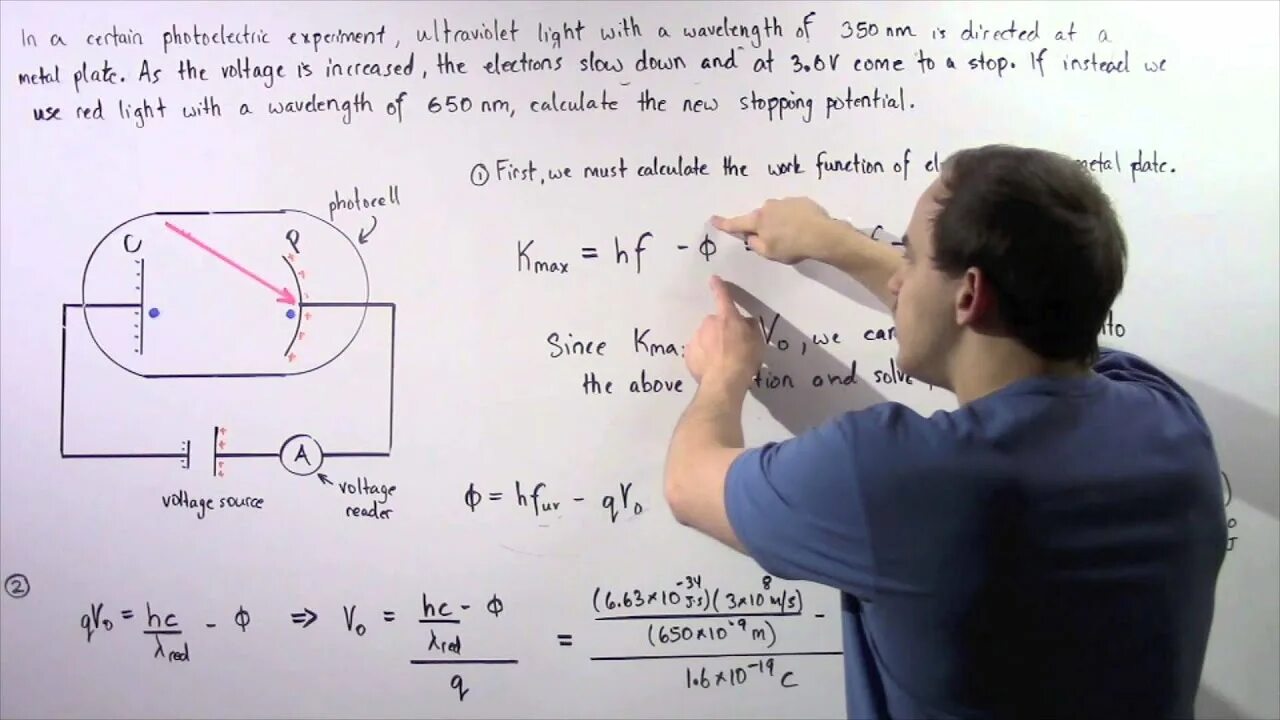 In a certain photoelectric experiment, ultraviolet light with a wavelength of 350 nm is directed at a
metal plate. As the voltage is increased, the electrons slow down and at 3.0V come to a stop. If instead we
use red light with a wavelength of 650 nm, calculate the new stopping potential.
① First, we must calculate the work function of metal plate.
photocell
C P
Kmax = hf - ϕ
Since V₀, we can
the above and solve
A
voltage source
voltage
reader
ϕ = hf_uv - qV₀
②
qV₀ = hc/λred - ϕ ⇒ V₀ = (hc/λred - ϕ)/q = ((6.63×10⁻³⁴ J·s)(3×10⁸ m/s)/(650×10⁻⁹ m) - / 1.6×10⁻¹⁹ C